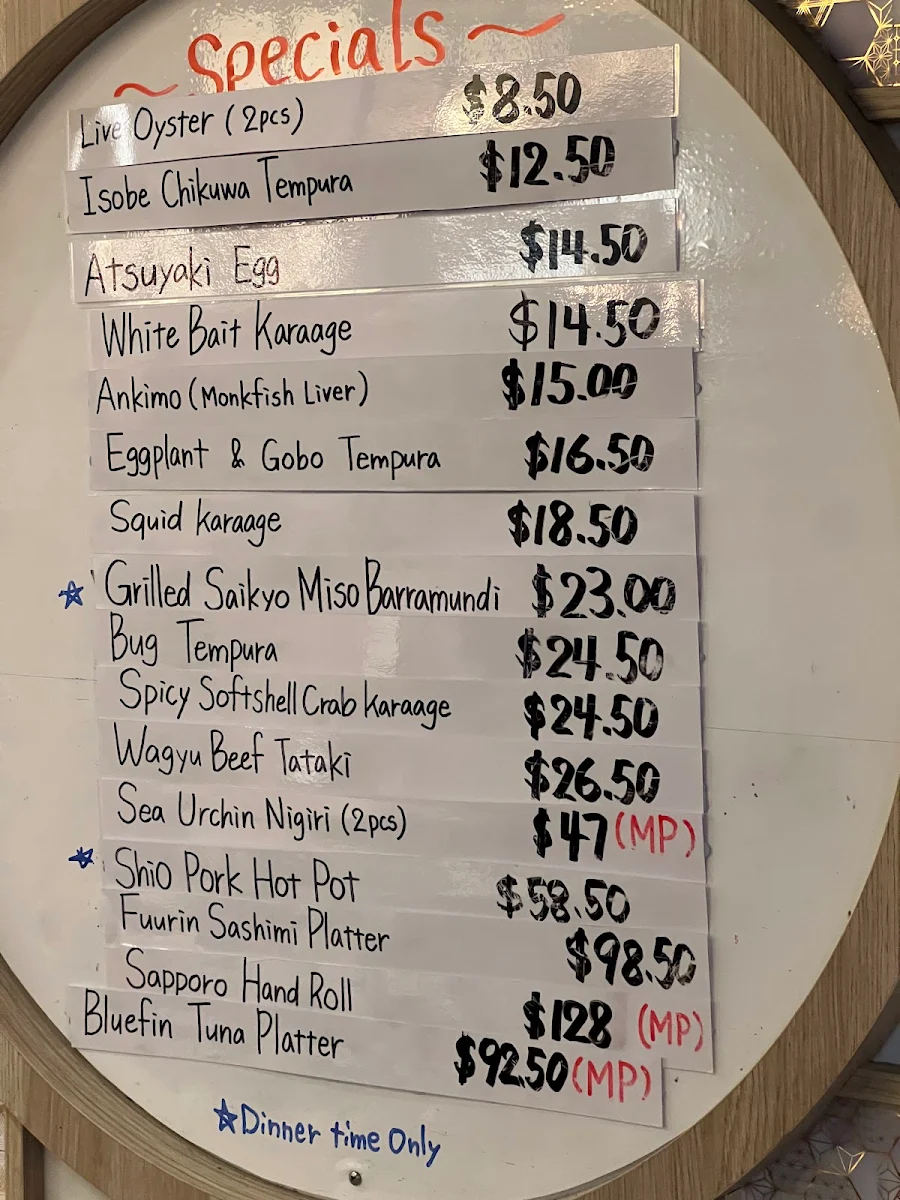 ~ Specials ~
Live Oyster (2pcs) $8.50
Isobe Chikuwa Tempura $12.50
Atsuyaki Egg $14.50
White Bait Karaage $14.50
Ankimo (Monkfish Liver) $15.00
Eggplant & Gobo Tempura $16.50
Squid Karaage $18.50
☆ Grilled Saikyo Miso Barramundi $23.00
Bug Tempura $24.50
Spicy Softshell Crab Karaage $24.50
Wagyu Beef Tataki $26.50
Sea Urchin Nigiri (2pcs) $47 (MP)
☆ Shio Pork Hot Pot $58.50
Fuurin Sashimi Platter $98.50
Sapporo Hand Roll $128 (MP)
Bluefin Tuna Platter $92.50 (MP)
☆ Dinner time Only